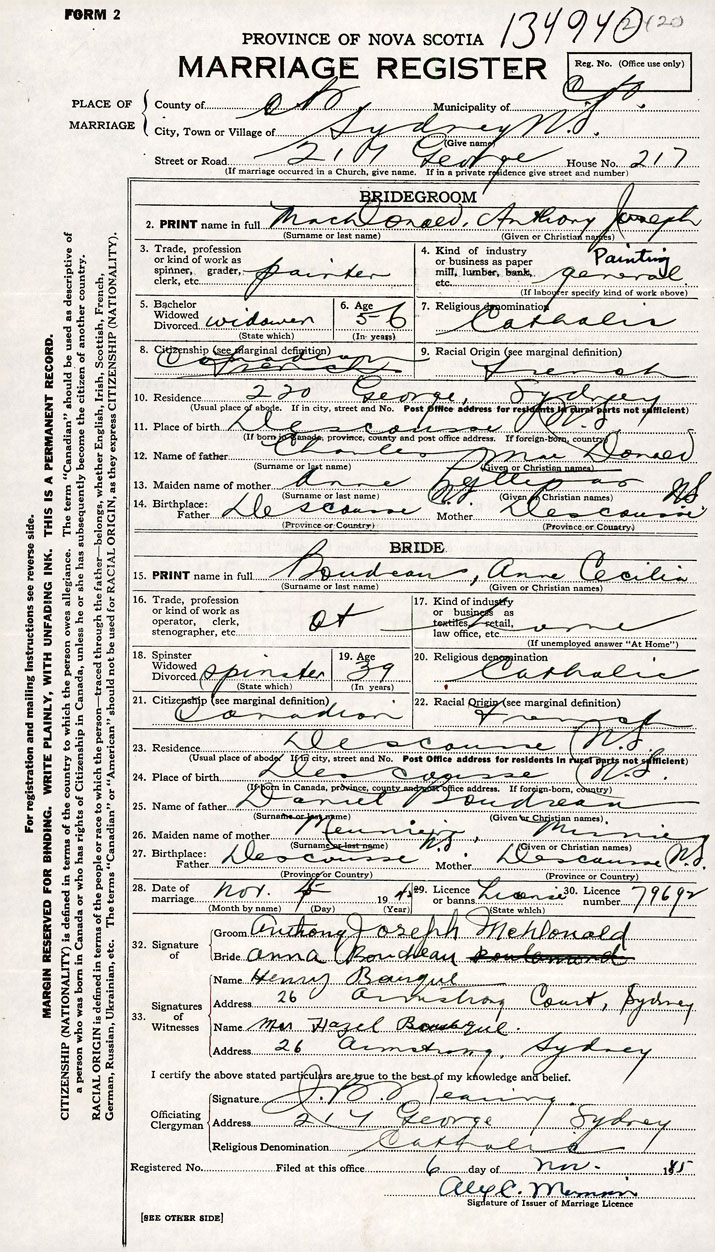 FORM 2
PROVINCE OF NOVA SCOTIA 134940
MARRIAGE REGISTER
Reg. No. (Office use only)
PLACE OF MARRIAGE
County of C B Municipality of
City, Town or Village of Sydney N.S.
(Give name)
Street or Road 217 George House No. 217
(If marriage occurred in a Church, give name. If in a private residence give street and number)
BRIDEGROOM
2. PRINT name in full MacDonald, Anthony Joseph
(Surname or last name) (Given or Christian names)
3. Trade, profession or kind of work as spinner, grader, clerk, etc. painter
4. Kind of industry or business as paper mill, lumber, bank, etc. Painting general
(If labourer specify kind of work above)
5. Bachelor Widowed Divorced widower
(State which)
6. Age 56
(In years)
7. Religious denomination Catholic
8. Citizenship (see marginal definition) Canadian French
9. Racial Origin (see marginal definition) French
10. Residence 220 George, Sydney
(Usual place of abode. If in city, street and No. Post Office address for residents in rural parts not sufficient)
11. Place of birth Descousse N.S.
(If born in Canada, province, county and post office address. If foreign-born, country)
12. Name of father Charles MacDonald
(Surname or last name) (Given or Christian names)
13. Maiden name of mother Anne
(Surname or last name) (Given or Christian names)
14. Birthplace: Father Descousse N.S. Mother Descousse N.S.
(Province or Country) (Province or Country)
BRIDE
15. PRINT name in full Boudeau, Anne Cecilia
(Surname or last name) (Given or Christian names)
16. Trade, profession or kind of work as operator, clerk, stenographer, etc. at
17. Kind of industry or business as textiles, retail, law office, etc. home
(If unemployed answer "At Home")
18. Spinster Widowed Divorced spinster
(State which)
19. Age 39
(In years)
20. Religious denomination Catholic
21. Citizenship (see marginal definition) Canadian
22. Racial Origin (see marginal definition) French
23. Residence Descousse N.S.
(Usual place of abode. If in city, street and No. Post Office address for residents in rural parts not sufficient)
24. Place of birth Descousse N.S.
(If born in Canada, province, county and post office address. If foreign-born, country)
25. Name of father Daniel Boudreau
(Surname or last name) (Given or Christian names)
26. Maiden name of mother Meunier, Minnie
(Surname or last name) (Given or Christian names)
27. Birthplace: Father Descousse N.S. Mother Descousse N.S.
(Province or Country) (Province or Country)
28. Date of marriage Nov. 5 19
(Month by name) (Day) (Year)
29. Licence or banns License
(State which)
30. Licence number 79692
32. Signature of
Groom Anthony Joseph McDonald
Bride Anna Boudeau
33. Signatures of Witnesses
Name Henry
Address 26 Armstrong Court, Sydney
Name Mrs Hazel
Address 26 Armstrong, Sydney
I certify the above stated particulars are true to the best of my knowledge and belief.
Officiating Clergyman
Signature
Address 217 George Sydney
Religious Denomination Catholic
Registered No. Filed at this office 6 day of Nov. 19
Signature of Issuer of Marriage Licence
[SEE OTHER SIDE]
For registration and mailing instructions see reverse side.
MARGIN RESERVED FOR BINDING. WRITE PLAINLY, WITH UNFADING INK. THIS IS A PERMANENT RECORD.
CITIZENSHIP (NATIONALITY) is defined in terms of the country to which the person owes allegiance. The term "Canadian" should be used as descriptive of
a person who was born in Canada or who has rights of Citizenship in Canada, unless he or she has subsequently become the citizen of another country.
RACIAL ORIGIN is defined in terms of the people or race to which the person—traced through the father—belongs, whether English, Irish, Scottish, French,
German, Russian, Ukrainian, etc. The terms "Canadian" or "American" should not be used for RACIAL ORIGIN, as they express CITIZENSHIP (NATIONALITY).